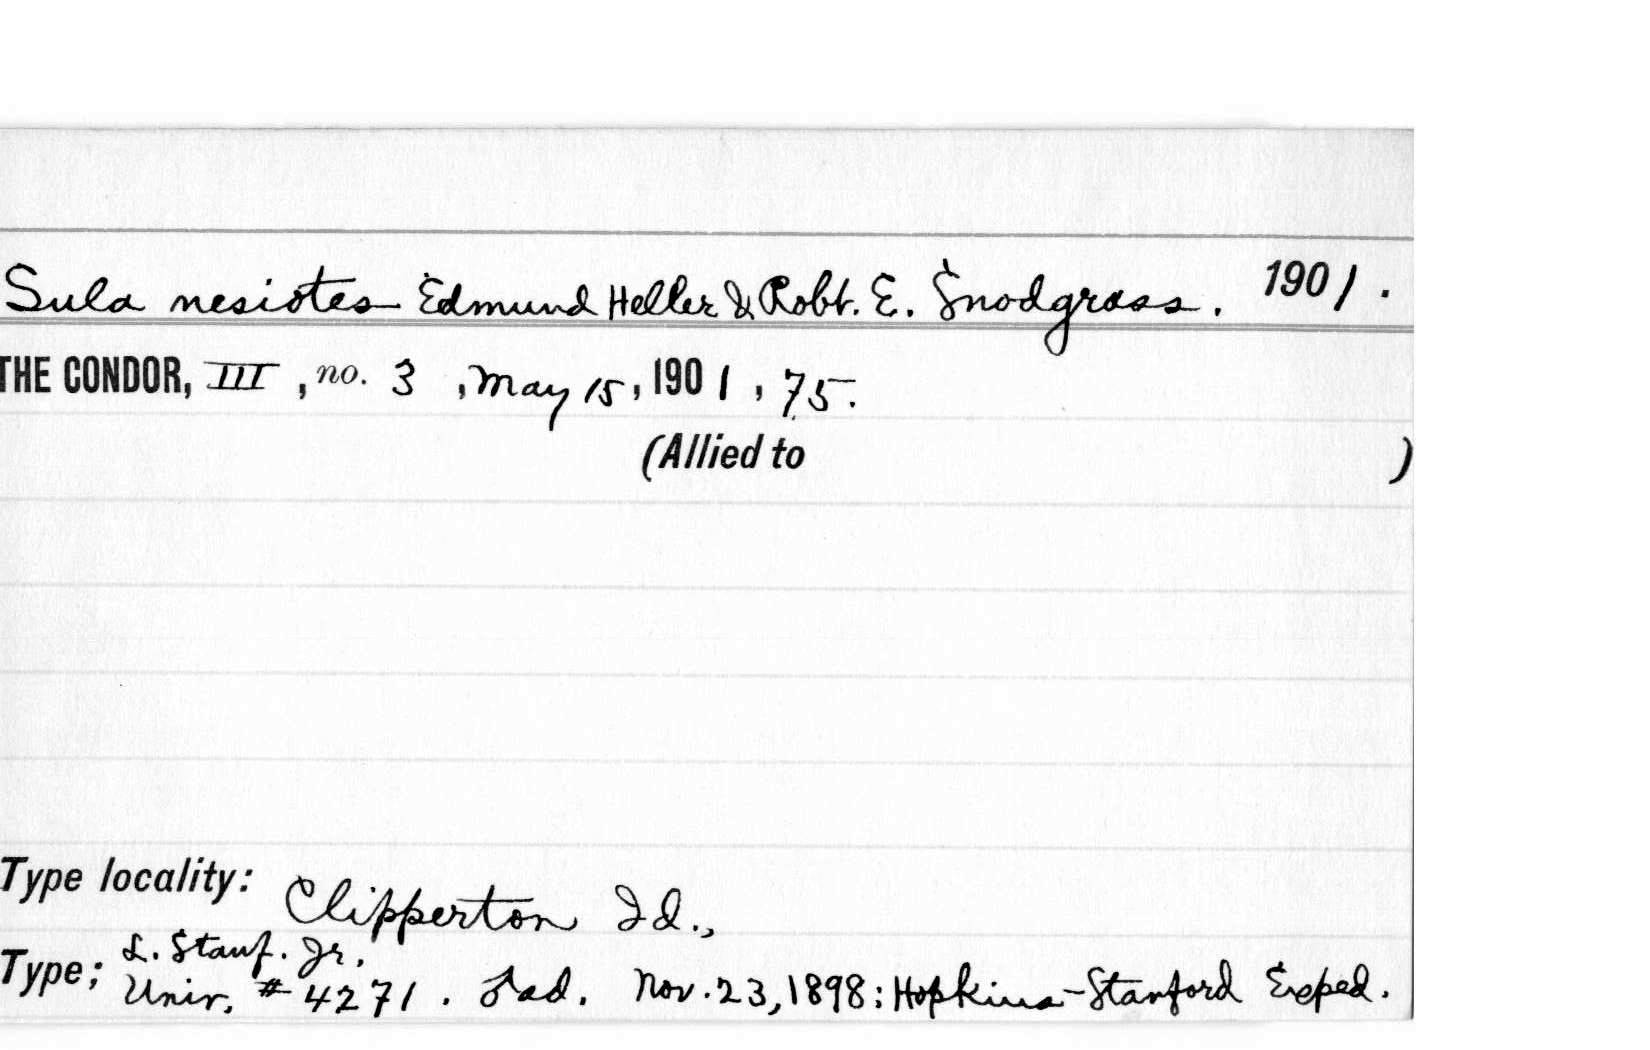 Sula nesiotes Edmund Heller & Robt. E. Snodgrass. 1901.
THE CONDOR, III, no. 3, May 15, 1901, 75.
(Allied to )
Type locality: Clipperton Id.,
L. Stanf. Jr.
Type; Univ. # 4271. ♂ad. Nov. 23, 1898: Hopkins-Stanford Exped.